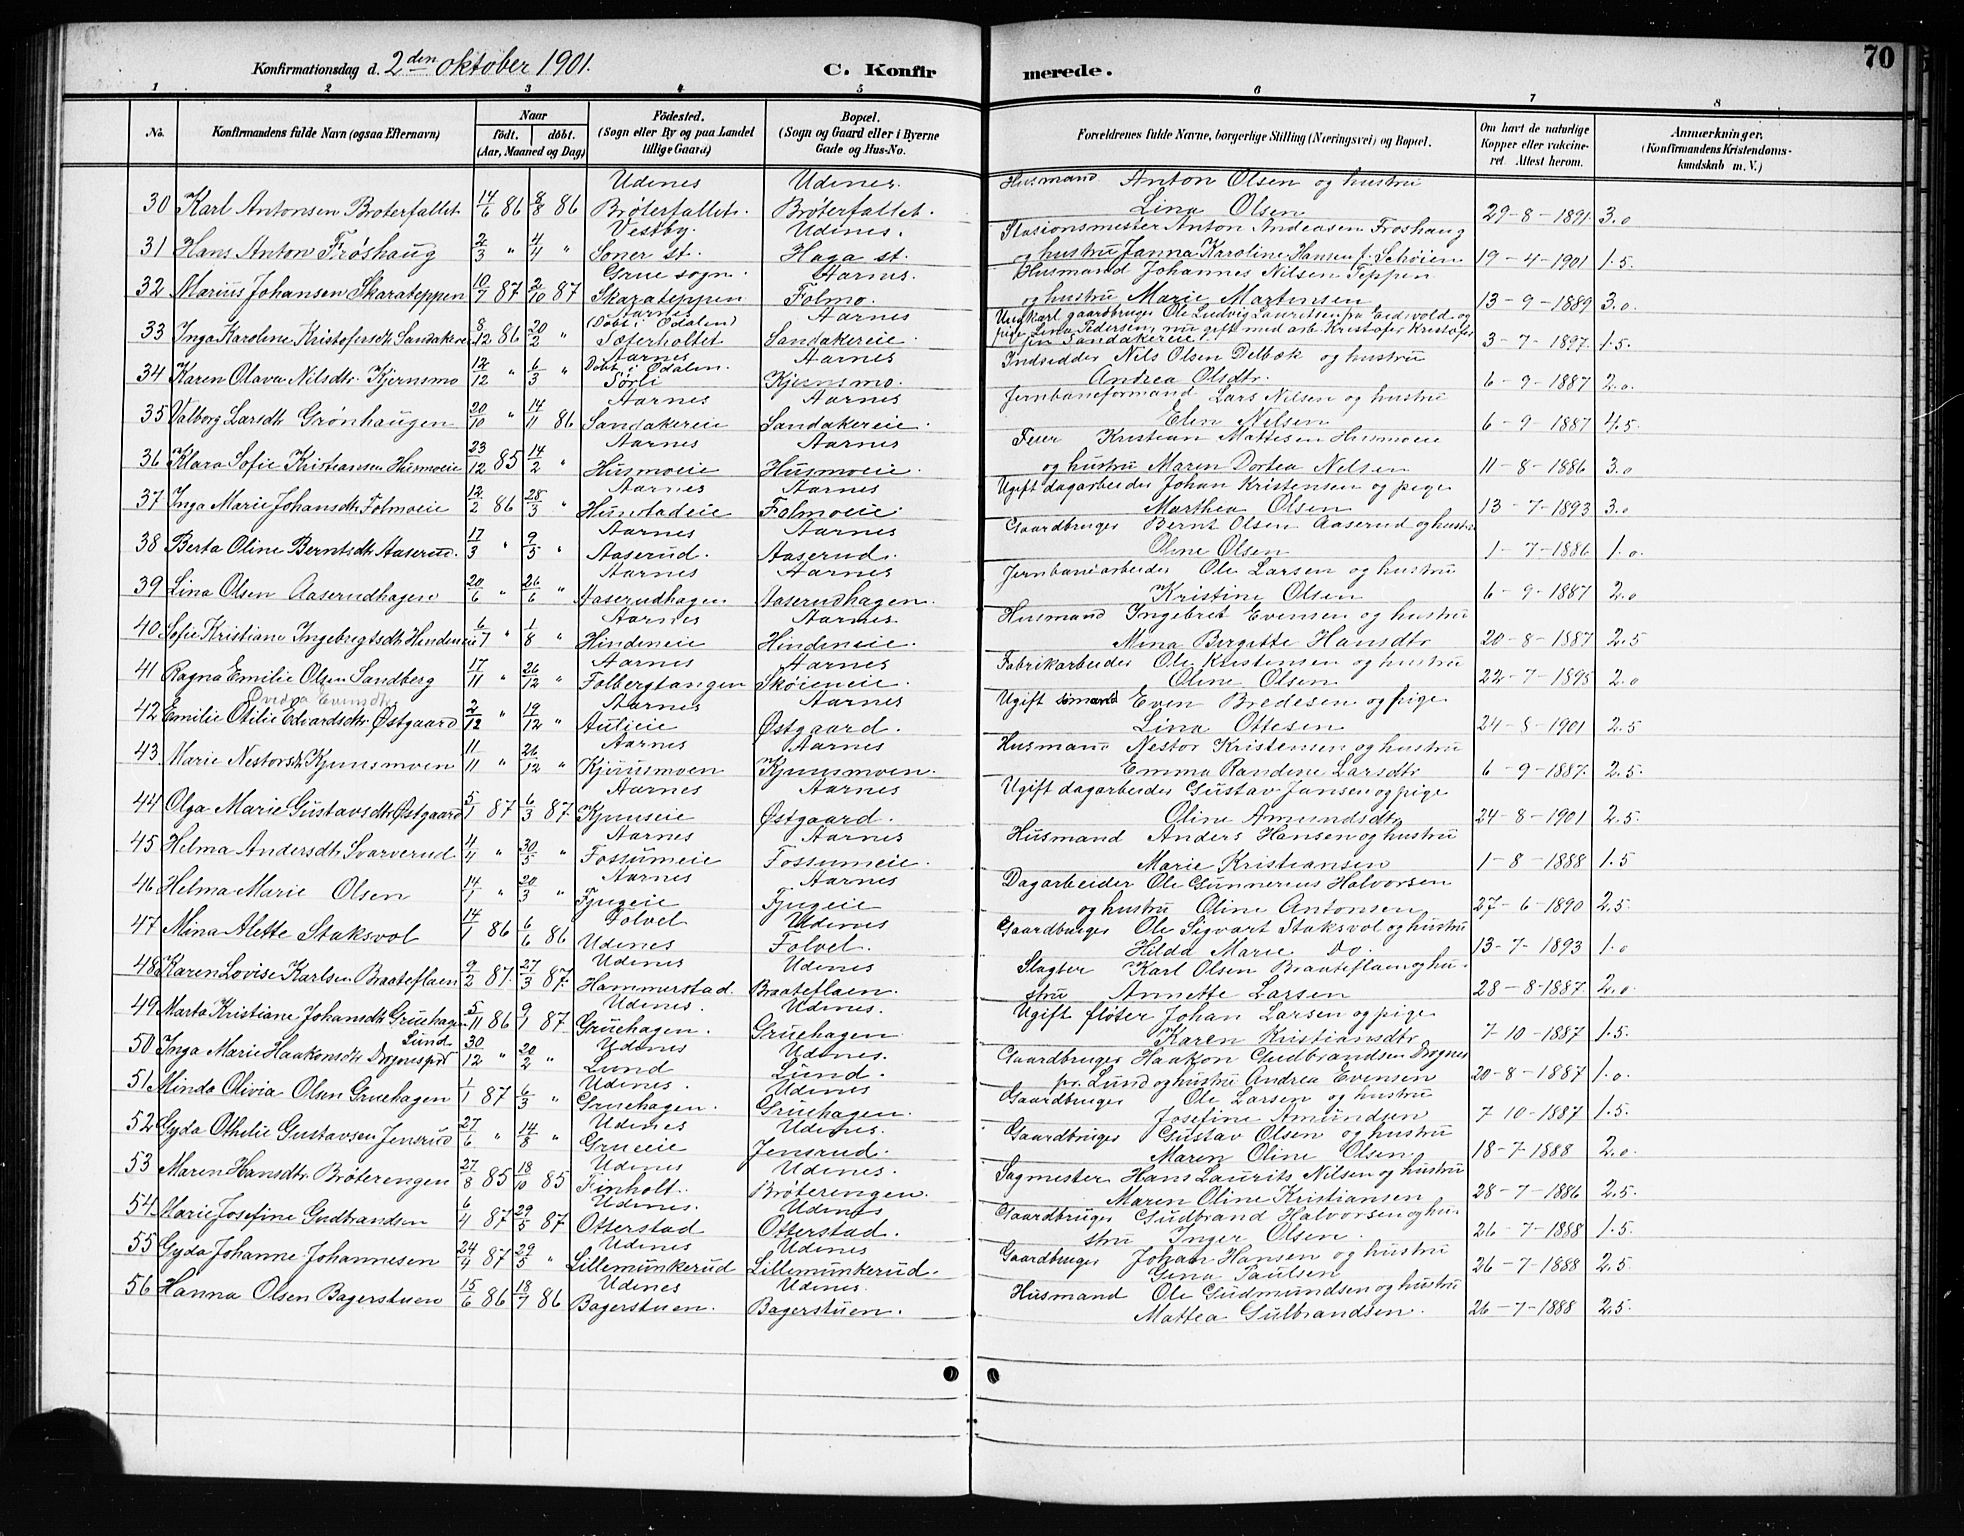 Konfirmationsdag d. 2den oktober 1901.
C. Konfirmerede.
70
1 2 3 4 5 6 7 8
No. Konfirmandens fulde Navn (ogsaa Efternavn) Naar født. døbt. (Aar, Maaned og Dag) Fødested. (Sogn eller By og paa Landet tillige Gaard) Bopæl. (Sogn og Gaard eller i Byerne Gade og Hus-No. Forældrenes fulde Navne, borgerlige Stilling (Næringsvei) og Bopæl. Om havt de naturlige Kopper eller vakcineret. Attest herom. Anmærkninger, (Konfirmandens Kristendomskundskab m. V.)
Udenes Udenes. Husmand Anton Olsen og hustru
30 Karl Antonsen Brøterfallet 14/6 86 8/8 86 Brøterfallet. Brøterfallet. Lina Olsen 29-8-1891 3.0
Vestby. Udenes. Stasionsmester Anton Andeasen Froshaug
31 Hans Anton Frøshaug 2/3 " 4/4 " Soner st. Haga st. og hustru Janna Karoline Hansen f. Schöien 19-4-1901 1.5.
Grue sogn. Aarnes. Husmand Johannes Nilsen Teppen
32 Marius Johansen Skarateppen 10/7 87 2/10 87 Skarateppen Folmo. og hustru Marie Martensen 13-9-1889 3.0
Aarnes (Døbt i Odalen) Aarnes Ungkarl gaardbruger Ole Ludvig Lauritsen fra Eidsvold og
33 Inga Karoline Kristofersdt Sandakereie 8/12 86 20/2 " Sæterholtet Sandakereie. pige Lina Pedersen, nu gift med arb. Kristofer Kristofersen Sandakereie 3-7-1897. 1.5.
Aarnes Døbt i Odalen. Aarnes Indsidder Nils Olsen Delbæk og hustru
34 Karen Olava Nilsdtr. Kjernsmo 12/12 " 6/3 " Sørli Kjernsmo. Andrea Olsdtr. 6-9-1887 2.0.
Aarnes Aarnes Jernbaneformand Lars Nilsen og hustru
35 Valborg Larsdtr Grønhaugen 20/10 " 14/11 86 Sandakereie Sandakereie. Elen Nilsen 6-9-1887 4.5.
Aarnes Aarnes Feier Kristian Mattesen Husmoeie
36 Klara Sofie Kristiansen Husmoeie 23/12 85 14/2 " Husmoeie Husmoeie. og hustru Maren Dortea Nelsen 11-8-1886 3.0
Aarnes Aarnes Ugift dagarbeider Johan Kristensen og pige
37 Inga Marie Johansdtr Folmoeie 12/2 86 28/3 " Hunstadeie Folmoeie. Marthea Olsen 13-7-1893 3.0
Aarnes Aarnes Gaardbruger Bernt Olsen Aaserud og hustru
38 Berta Oline Berntsdtr Aaserud. 17/3 " 9/5 " Aaserud. Aaserud. Oline Olsen 1-7-1886 1.0.
Aarnes Aarnes Jernbanearbeider Ole Larsen og hustru
39 Lina Olsen Aaserudhagen 20/6 " 26/6 " Aaserudhagen Aaserudhagen. Kristine Olsen 6-9-1887 2.0
Aarnes Aarnes. Husmand Ingebret Evensen og hustru
40 Sofie Kristiane Ingebregtsdtr Hindeneie 6/7 " 1/8 " Hindeneie Hindeneie. Mina Bergitte Hansdtr 20-8-1887 2.5
Aarnes Aarnes Fabrikarbeider Ole Kristensen og hustru
41 Ragna Emilie Olsen Sandberg 17/11 " 26/12 " Folbergtangen Skøieneie. Oline Olsen 22-7-1895 2.0
Evensdtr Aarnes Aarnes Ugift sømand Even Bredesen og pige
42 Emilie Otilie Edvardsdtr Østgaard 2/12 " 19/12 " Aulieie Østgaard. Lina Ottesen 24-8-1901 2.5
Aarnes Aarnes Husmand Nestor Kristensen og hustru
43 Marie Nestorsdtr Kjernsmoen 11/11 " 26/12 " Kjernsmoen Kjernsmoen. Emma Randine Larsdtr 6-9-1887. 2.5.
Aarnes Aarnes Ugift dagarbeider Gustav Jansen og pige
44 Olga Marie Gustavsdtr Østgaard 5/1 87 6/3 87. Kjernseie Østgaard. Oline Amundsdtr 24-8-1901 2.5.
Aarnes Aarnes Husmand Anders Hansen og hustru
45 Helma Andersdtr Svarverud 4/4 " 30/5 " Fossumeie Fossumeie. Marie Kristiansen 1-8-1888 1.5
Aarnes Aarnes Dagarbeider Ole Gunnereus Halvorsen
46 Helma Marie Olsen 14/1 " 20/3 " Fjugeie Fjugeie og hustru Oline Antonsen 27-6-1890 2.5
Folvel Udenes Gaardbruger Ole Sigvart Staksvol og hustru
47 Mina Alette Staksvol 14/1 86 6/6 86 Udenes Folvel. Hilda Marie Do. 13-7-1893 1.0
Udenes Udenes Slagter Karl Olsen Braateflaen og hu-
48 Karen Lovise Karlsen Braateflaen 9/2 87. 27/3 87. Hammerstad. Braateflaen. stru Annette Larsen 28-8-1887. 2.0
Udenes. Udenes. Ugift fløter Johan Larsen og pige
49 Marta Kristiane Johansdtr Gruehagen 5/11 86 9/1 87. Gruehagen. Gruehagen Karen Kristiansdtr 7-10-1887 1.5.
Lund Udenes Udenes. Gaardbruger Haakon Gudbrandsen Drognes
50 Inga Marie Haakonsdtr Drognespr 30/12 " 20/2 " Lund Lund. pr. Lund og hustru Andrea Evensen 20-8-1887 1.0.
Udenes. Udenes Gaardbruger Ole Larsen og hustru
51 Minda Olivia Olsen Gruehagen 1/1 87 6/3 " Gruehagen. Gruehagen. Josefine Amundsen 7 10-1887 1.5.
Udenes Udenes. Gaardbruger Gustav Olsen og hustru
52 Gyda Othilie Gustavsen Jensrud 27/6 " 14/8 " Grueeie Jensrud. Maren Oline Olsen. 18-7-1888 2.0
Udenes Udenes. Sagmester Hans Laurits Nilsen og hustru
53 Maren Hansdtr. Brøterengen 27/8 85 18/10 85 Finholt. Brøterengen. Maren Oline Kristiansen 28-7-1886 2.5.
Udenes. Udenes Gaardbruger Gudbrand Halvorsen og hu-
54 Marie Josefine Gudbrandsen 6/4 87 29/5 87 Otterstad Otterstad. stru Inger Olsen. 26-7-1888 1.5
Udenes Udenes Gaardbruger Johan Hansen og hustru
55 Gyda Johanne Johannesen 24/4 87 29/5 " Lillemunkerud Lillemunkerud. Gina Paulsen 26-7-1888 2.5
Udenes Udenes. Husmand Ole Gudmundsen og hustru
56 Hanna Olsen Bagerstuen 15/6 86 18/7 86 Bagerstuen. Bagerstuen. Mattea Gulbrandsen. 26-7-1888 2.5.